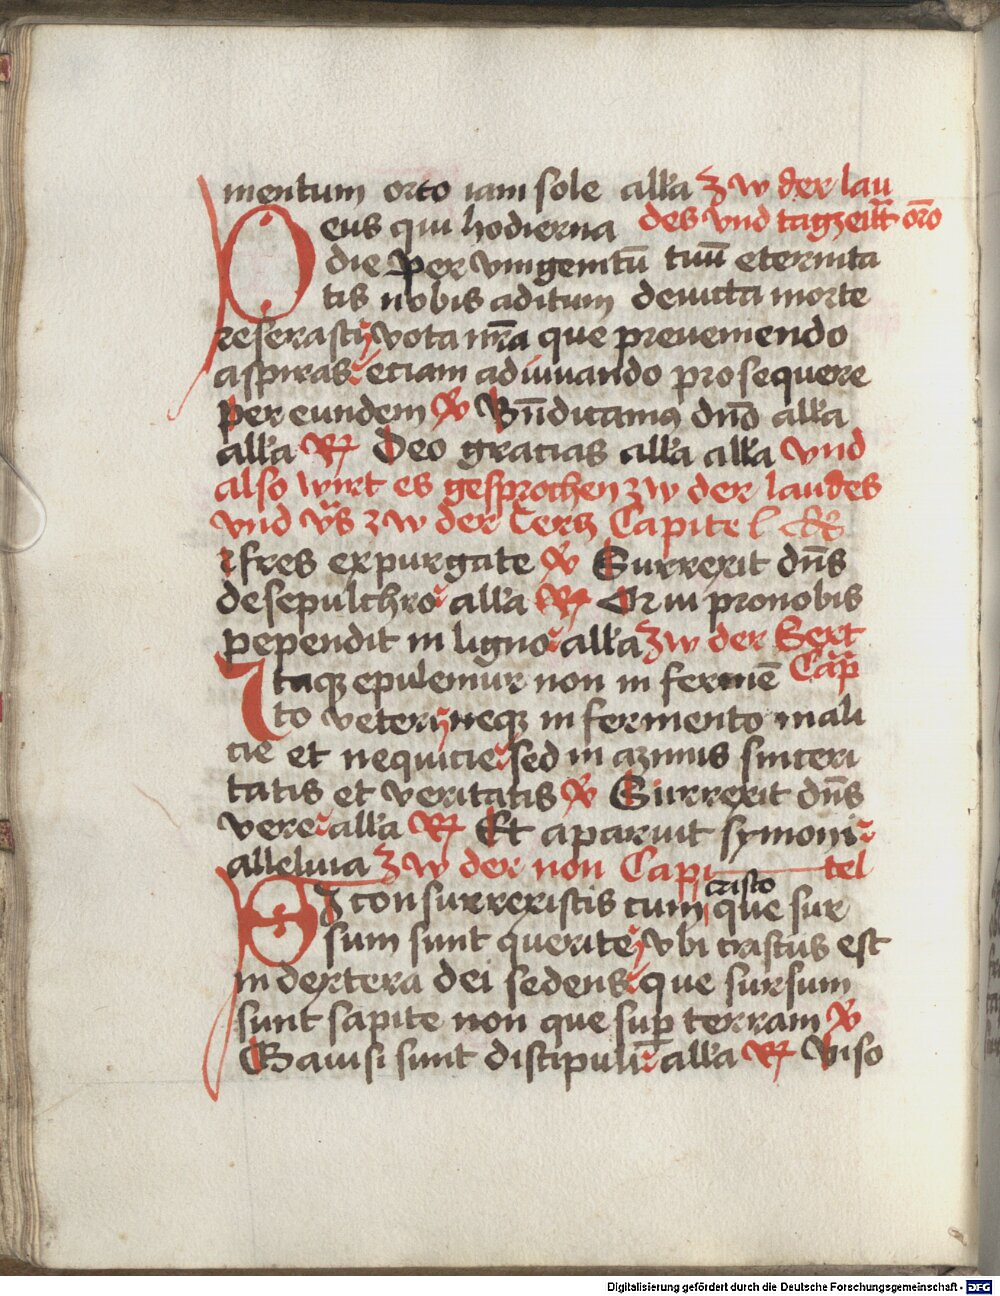 mentum orto iam sole alla Zw der lau
eus qui hodierna des vnd tagzeitt oro
die per vnigenitū tuū eternita
tis nobis aditum deuicta morte
reserasti vota nra que preueniendo
aspiras etiam adiuuando prosequere
per eundem ℣ Bndicamus dno alla
alla ℟ Deo gracias alla alla vnd
also wirt es gesprochen zw der laudes
vnd vs zw der Tertz Capitel
fres expurgate ℣ Surrexit dns
de sepulchro alla ℟ Qui pro nobis
pependit in ligno alla Zw der Sext
Itaq epulemur non in fermē Cap
to veteri neq in fermento mali
cie et nequicie sed in azimis sinceri
tatis et veritatis ℣ Surrexit dns
vere alla ℟ Et aparuit symoni
alleluia Zw der non Capi tel
Si consurrexistis cum cristo que sur
sum sunt querite vbi cristus est
in dextera dei sedens que sursum
sunt sapite non que sup terram ℣
Gauisi sunt discipuli alla ℟ Viso
Digitalisierung gefördert durch die Deutsche Forschungsgemeinschaft - DFG